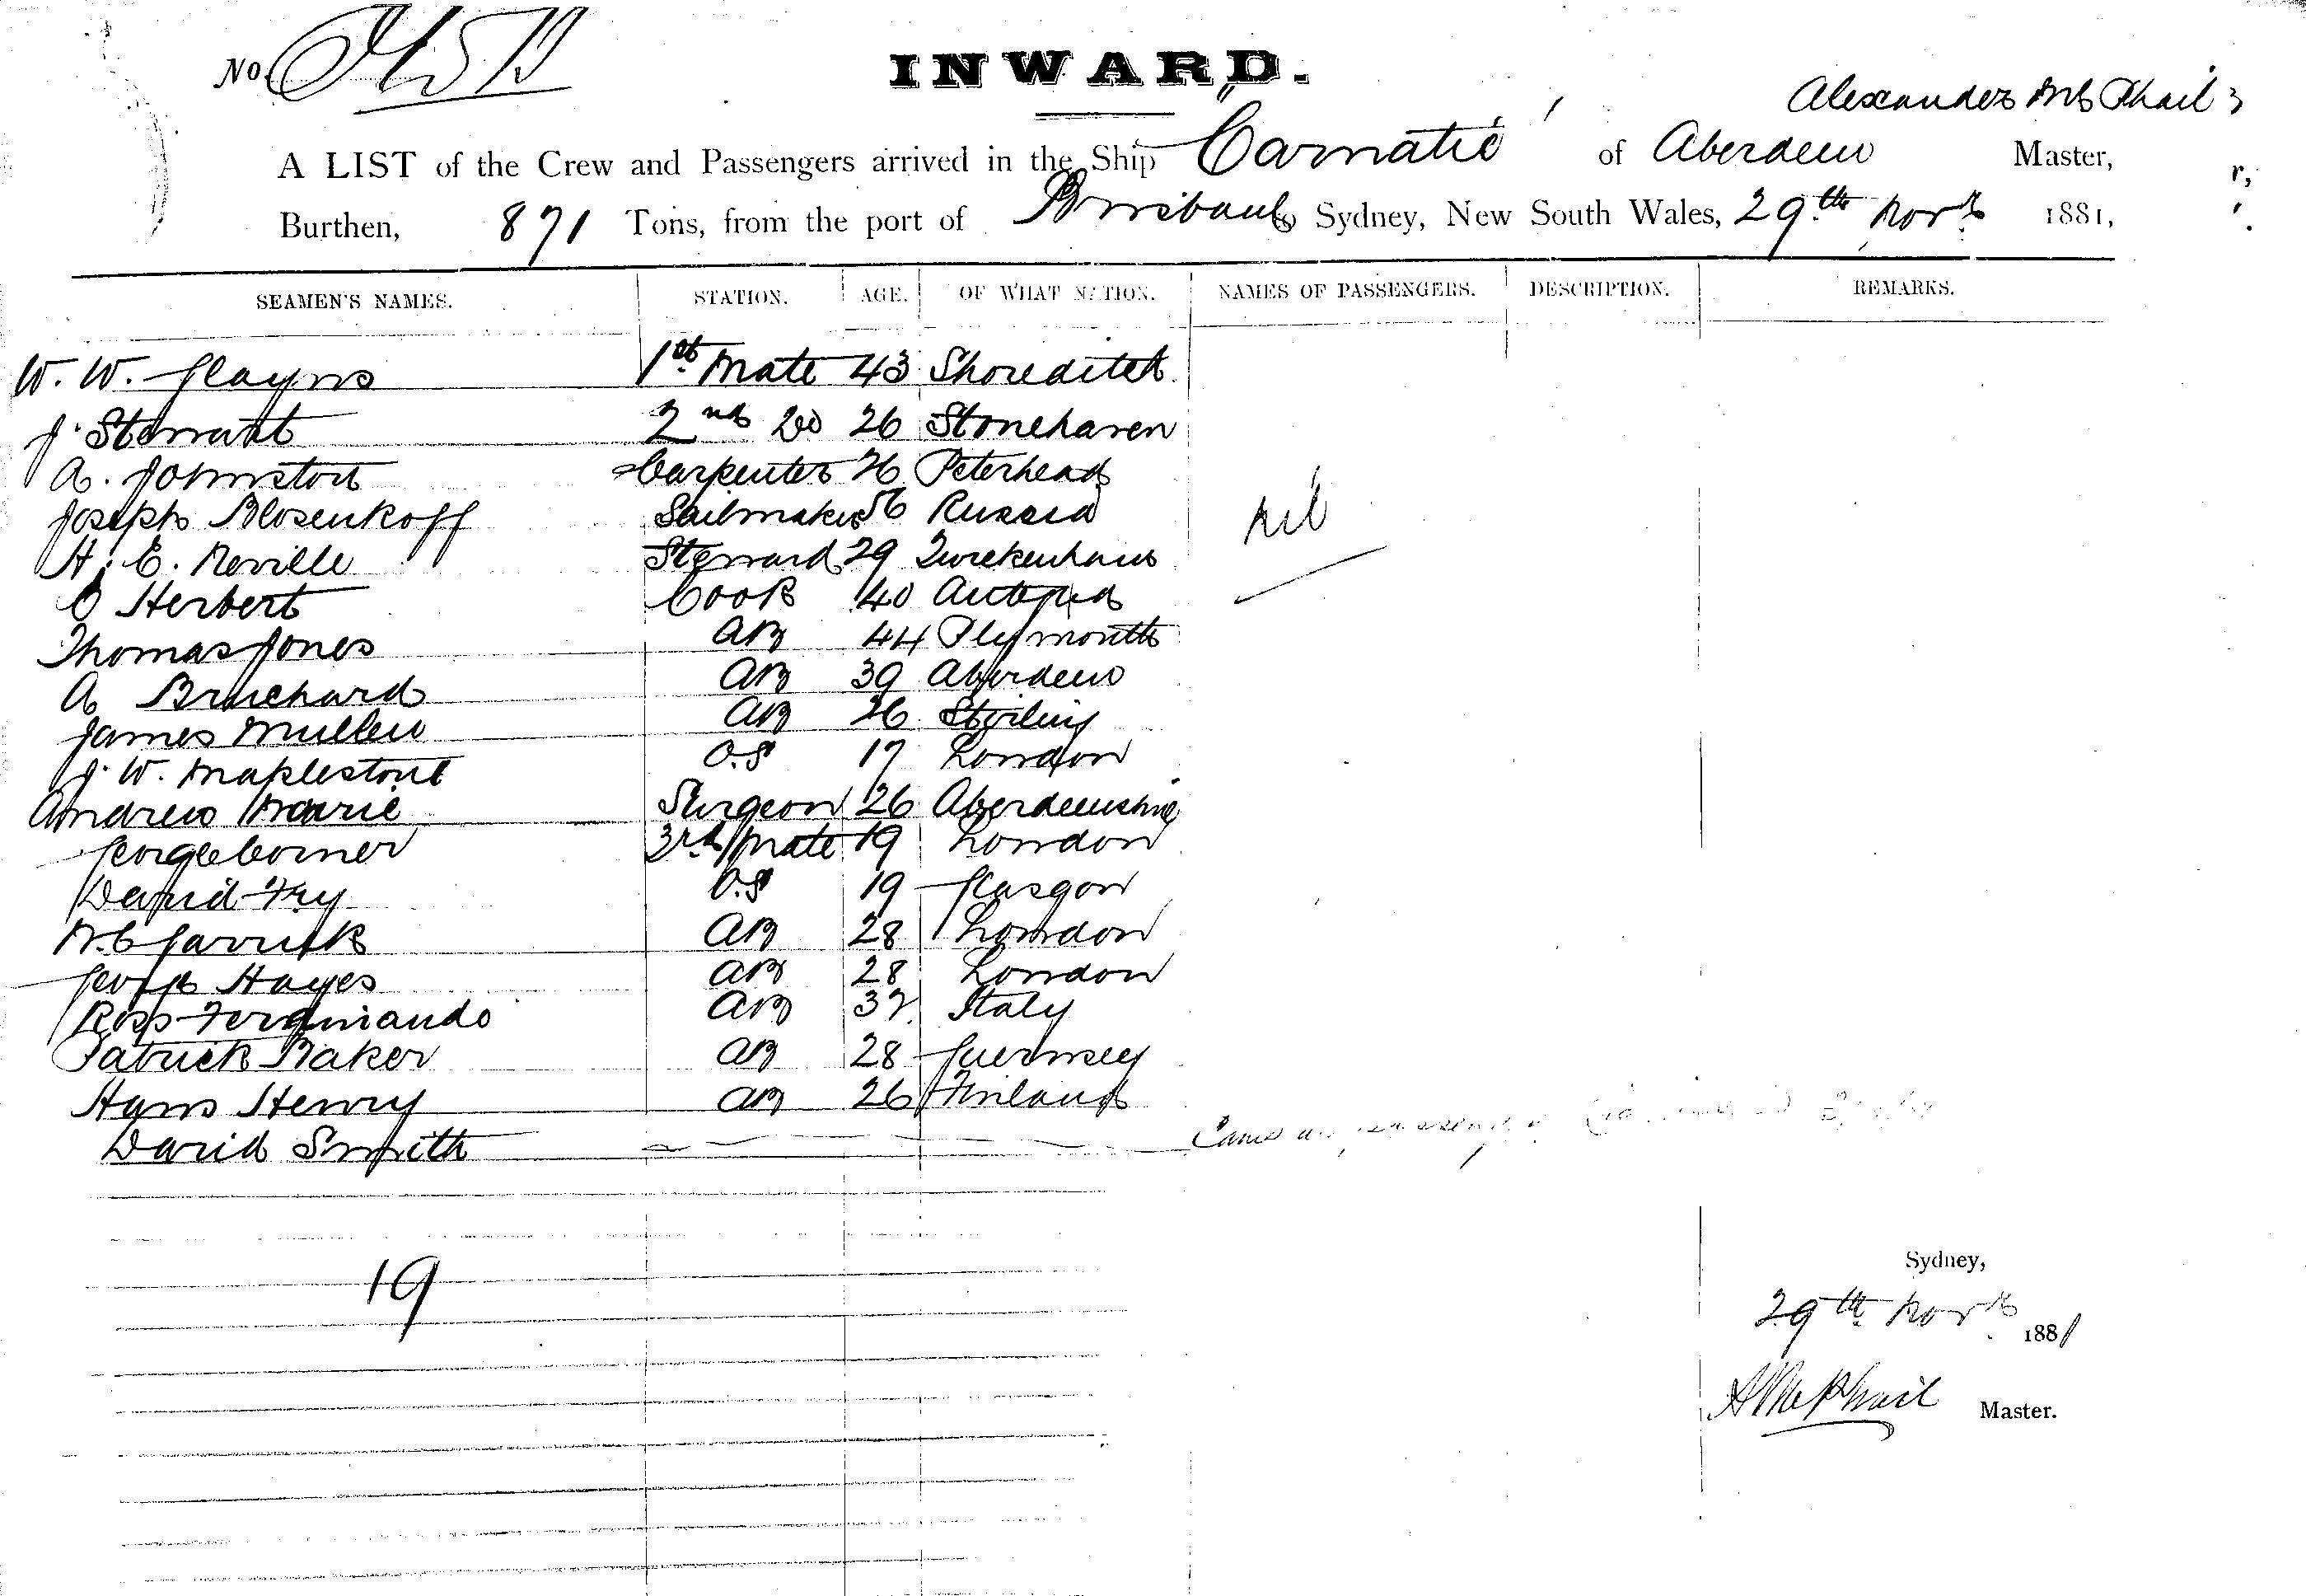 No.
INWARD.
Alexander McPhail
A LIST of the Crew and Passengers arrived in the Ship "Carnatic" of Aberdeen Master,
Burthen, 871 Tons, from the port of Brisbane Sydney, New South Wales, 29th Novr 1881,
SEAMEN'S NAMES. STATION. AGE. OF WHAT NATION. NAMES OF PASSENGERS. DESCRIPTION. REMARKS.
W. W. 1st Mate 43 Shoreditch
J. Stewart 2nd Do 26 Stonehaven
A. Johnston Carpenter 26 Peterhead
Joseph Blosenkoff Sailmaker 56 Russia
nil
H. E. Neville Steward 29 Twickenham
C Herbert Cook 40 Antigua
Thomas Jones AB 44 Plymouth
A AB 39 Aberdeen
James Mullen AB 26 Sterling
J. W. Maplestone O.S 17 London
Andrew Surgeon 26 Aberdeenshire
George Corner 3rd Mate 19 London
David Fry O.S 19 Glasgow
Garrick AB 28 London
George Hayes AB 28 London
Ross Ferdinando AB 37 Italy
Patrick Baker AB 28 Guernsey
Hans Henry AB 26 Finland
David Smith Came as passenger
19
Sydney,
29th Novr
1881
A McPhail Master.